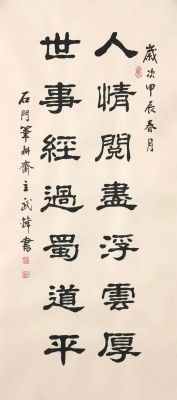 歲次甲辰春月
人情閱盡浮雲厚
世事經過蜀道平
石門筆耕齋主武鋒書